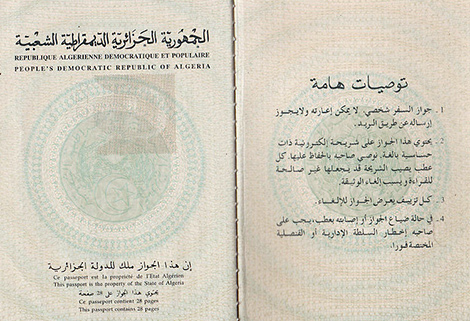 الجمهورية الجزائرية الديمقراطية الشعبية
REPUBLIQUE ALGERIENNE DEMOCRATIQUE ET POPULAIRE
PEOPLE'S DEMOCRATIC REPUBLIC OF ALGERIA
إن هذا الجواز ملك للدولة الجزائرية
Ce passeport est la propriété de l'Etat Algérien
This passport is the property of the State of Algeria
يحتوي هذا الجواز على 28 صفحة
Ce passeport contient 28 pages
This passport contains 28 pages
توصيات هامة
1 . جواز السفر شخصي، لا يمكن إعارته ولا يجوز
إرساله عن طريق البريد.
2 . يحتوي هذا الجواز على شريحة إلكترونية ذات
حساسية بالغة. نوصي صاحبه بالحفاظ عليها. كل
عطب يصيب الشريحة قد يجعلها غير صالحة
للقراءة و يسبب إلغاء الوثيقة.
3 . كل تزييف يعرض الجواز للإلغاء.
4 . في حالة ضياع الجواز أو إصابته بعطب، يجب على
صاحبه إخطار السلطة الإدارية أو القنصلية
المختصة فورا.